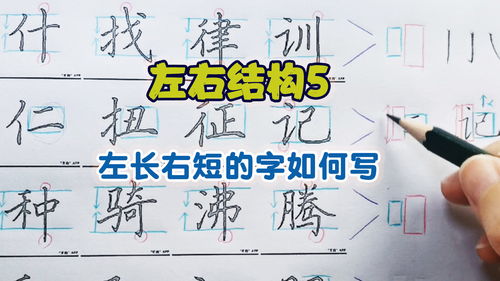 什找律训
左右结构5
仁扭征记 记
左长右短的字如何写
种骑沸腾